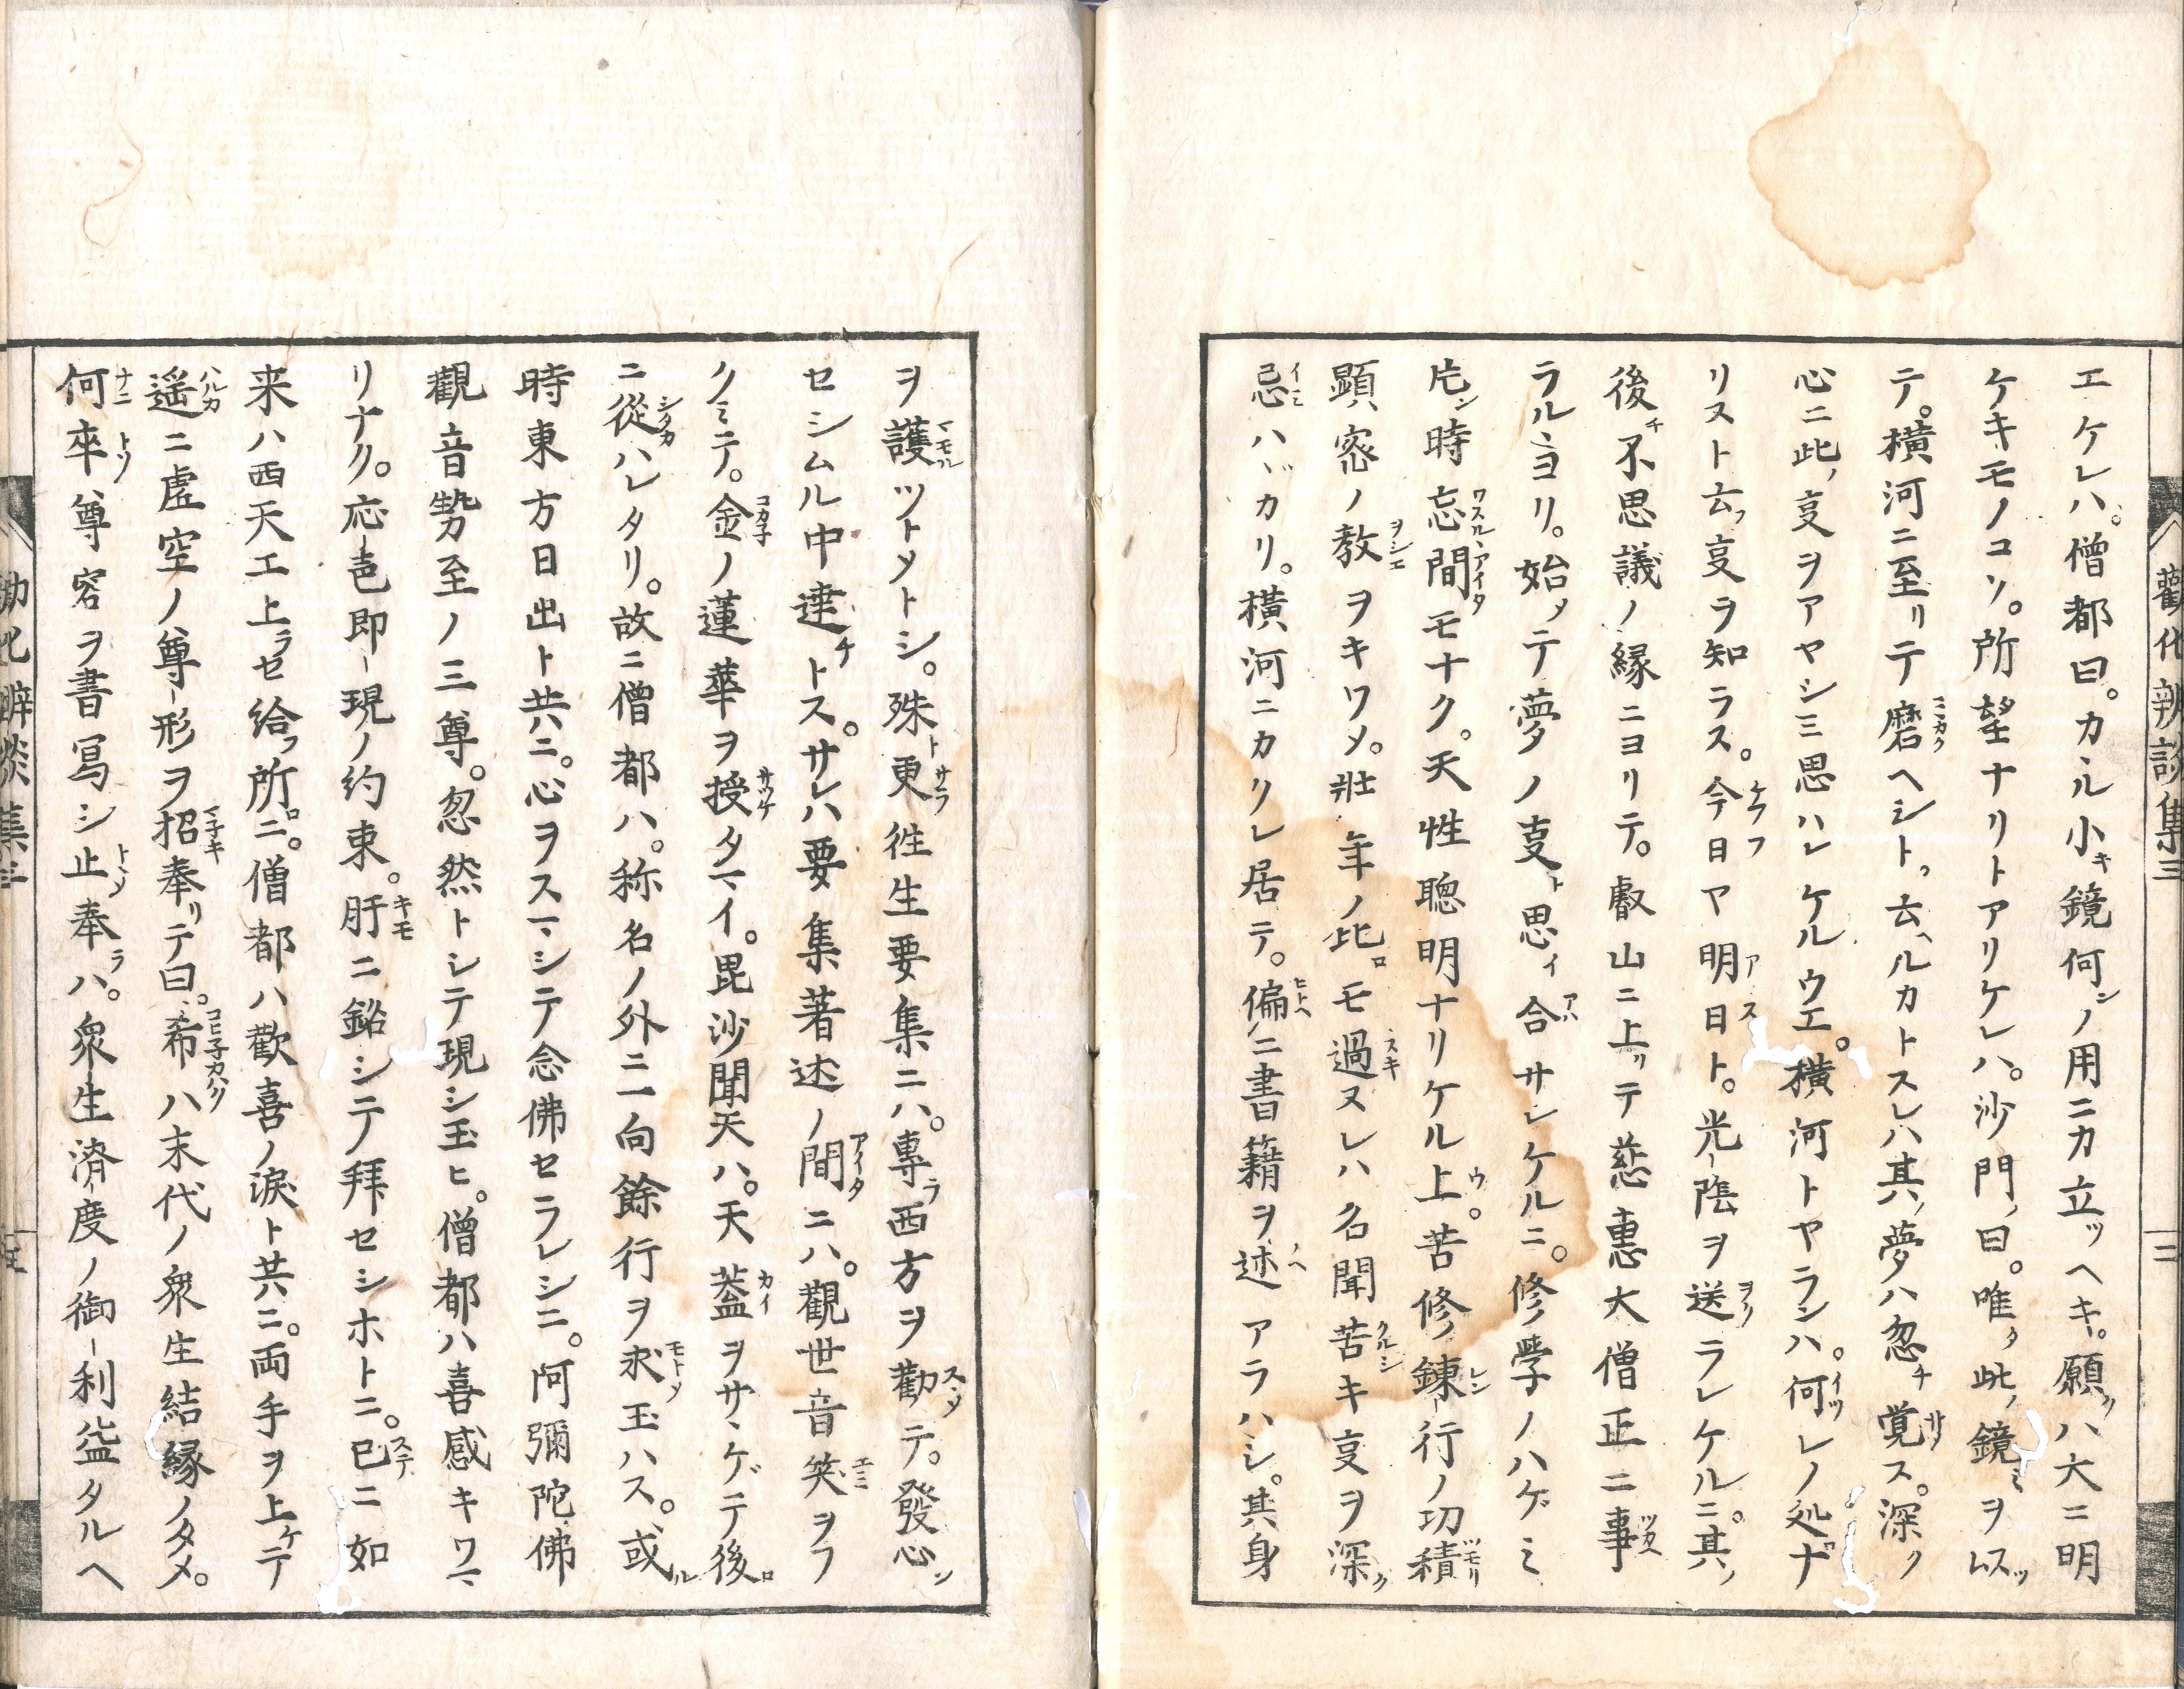 勸化辨談集三
三
エケレハ。僧都曰。カヽル小キ鏡何ンノ用ニカ立ツヘキ。願クハ大ニ明
ケキモノコソ。所望ナリトアリケレハ。沙門ノ曰。唯タ此ノ鏡ミヲ以ツ
テ。横河ニ至リテ磨ヘシト。云ヘルカトスレハ其ノ夢ハ忽チ覚ス。深ク
心ニ此ノ㕝ヲアヤシミ思ハレケルウエ。横河トヤランハ。何レノ処ナ
リスト云フ㕝ヲ知ラス。今日ヤ明日ト。光陰ヲ送ラレケルニ。其ノ
後チ不思議ノ縁ニヨリテ。叡山ニ上リテ慈惠大僧正ニ事
ラルヽヨリ。始メテ夢ノ㕝ト思イ合サレケルニ。修学ノハゲミ
片ン時忘間モナク。天性聰明ナリケル上。苦修練行ノ功積
顕密ノ教ヲキワメ。壮年ノ比ロモ過ヌレハ名聞苦キ㕝ヲ深ク
忌ハヾカリ。横河ニカクレ居テ。偏ニ書籍ヲ述アラハシ。其身
ヲ護ツトメトシ。殊更徃生要集ニハ。專ラ西方ヲ勸テ。發心ン
セシムル中達チトス。サレハ要集著述ノ間ニハ。觀世音笑ヲフ
クミテ。金ノ蓮華ヲ授タマイ。毘沙聞天ハ。天蓋ヲサヽゲテ後ロ
ニ從ハレタリ。故ニ僧都ハ。称名ノ外ニ一向餘行ヲ求玉ハス。或ル
時東方日出ト共ニ。心ヲスマシテ念佛セラレシニ。阿彌陀佛
觀音勢至ノ三尊。忽然トシテ現シ玉ヒ。僧都ハ喜感キワマ
リナク。応色即現ノ約束。肝ニ銘シテ拜セシホトニ。已ニ如
来ハ西天エ上ラセ給フ所ロニ。僧都ハ歡喜ノ涙ト共ニ。両手ヲ上ケテ
遥ニ虚空ノ尊形ヲ招奉リテ曰。希ハ末代ノ衆生結縁ノタメ。
何卒尊容ヲ書冩シ止奉ラハ。衆生済度ノ御利益タルヘ